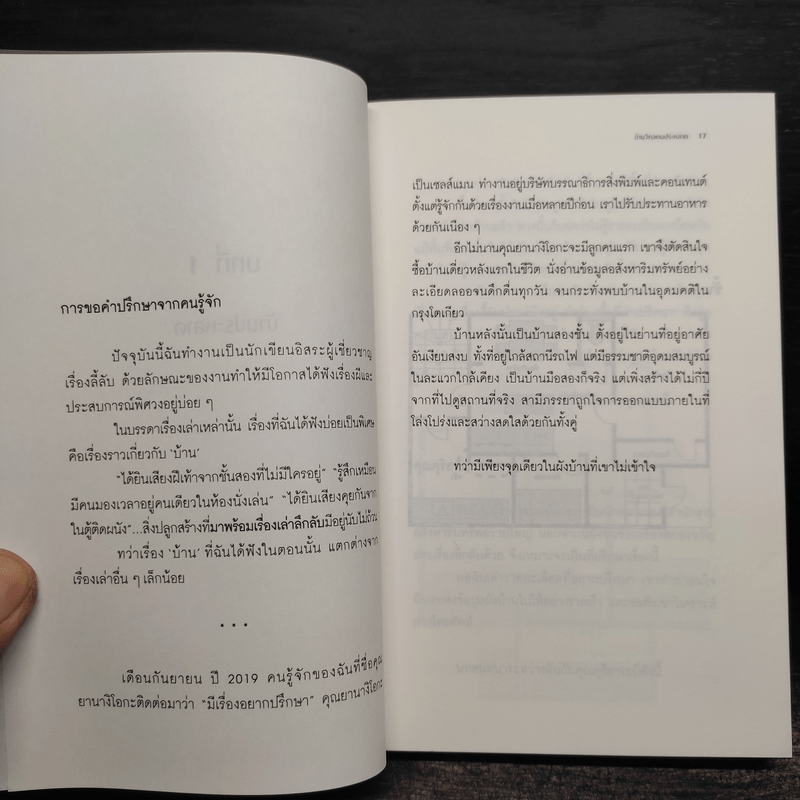 การขอคำปรึกษาจากคนรู้จัก
ปัจจุบันนี้ฉันทำงานเป็นนักเขียนอิสระผู้เชี่ยวชาญ
เรื่องลี้ลับ ด้วยลักษณะของงานทำให้มีโอกาสได้ฟังเรื่องผีและ
ประสบการณ์พิศวงอยู่บ่อย ๆ
ในบรรดาเรื่องเล่าเหล่านั้น เรื่องที่ฉันได้ฟังบ่อยเป็นพิเศษ
คือเรื่องราวเกี่ยวกับ ‘บ้าน’
“ได้ยินเสียงฝีเท้าจากชั้นสองที่ไม่มีใครอยู่” “รู้สึกเหมือน
มีคนมองเวลาอยู่คนเดียวในห้องนั่งเล่น” “ได้ยินเสียงคุยกันจาก
ในตู้ติดผนัง”...สิ่งปลูกสร้างที่มาพร้อมเรื่องเล่าลึกลับมีอยู่นับไม่ถ้วน
ทว่าเรื่อง ‘บ้าน’ ที่ฉันได้ฟังในตอนนั้น แตกต่างจาก
เรื่องเล่าอื่น ๆ เล็กน้อย
• • •
เดือนกันยายน ปี 2019 คนรู้จักของฉันที่ชื่อคุณ
ยานางิโอกะติดต่อมาว่า “มีเรื่องอยากปรึกษา” คุณยานางิโอกะ
บ้านวิกลคนประหลาด 17
เป็นเซลส์แมน ทำงานอยู่บริษัทบรรณาธิการสิ่งพิมพ์และคอนเทนต์
ตั้งแต่รู้จักกันด้วยเรื่องงานเมื่อหลายปีก่อน เราไปรับประทานอาหาร
ด้วยกันเนือง ๆ
อีกไม่นานคุณยานางิโอกะจะมีลูกคนแรก เขาจึงตัดสินใจ
ซื้อบ้านเดี่ยวหลังแรกในชีวิต นั่งอ่านข้อมูลอสังหาริมทรัพย์อย่าง
ละเอียดลออจนดึกดื่นทุกวัน จนกระทั่งพบบ้านในอุดมคติใน
กรุงโตเกียว
บ้านหลังนั้นเป็นบ้านสองชั้น ตั้งอยู่ในย่านที่อยู่อาศัย
อันเงียบสงบ ทั้งที่อยู่ใกล้สถานีรถไฟ แต่มีธรรมชาติอุดมสมบูรณ์
ในละแวกใกล้เคียง เป็นบ้านมือสองก็จริง แต่เพิ่งสร้างได้ไม่กี่ปี
จากที่ไปดูสถานที่จริง สามีภรรยาถูกใจการออกแบบภายในที่
โล่งโปร่งและสว่างสดใสด้วยกันทั้งคู่
ทว่ามีเพียงจุดเดียวในผังบ้านที่เขาไม่เข้าใจ